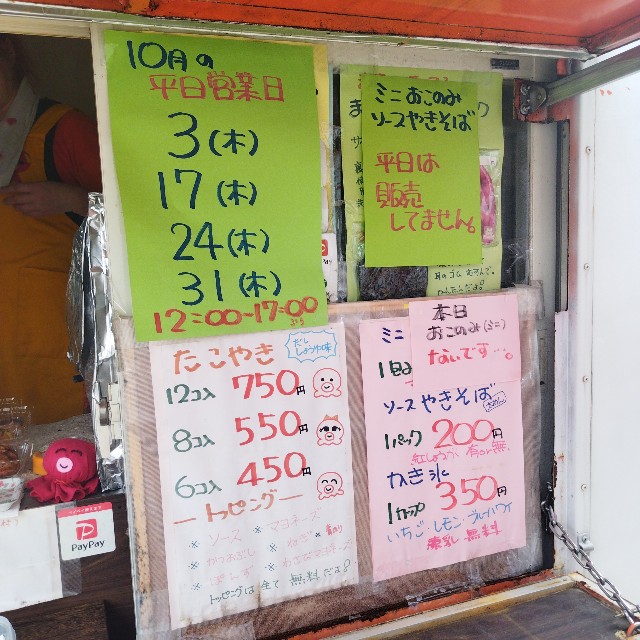 10月の
平日営業日
3(木)
17(木)
24(木)
31(木)
12:00~17:00
ミニおこのみ
ソースやきそば
平日は
販売
してません。
PayPay
たこやき
だし
しょうゆ味
12コ入 750円
8コ入 550円
6コ入 450円
トッピング
ソース ※ マヨネーズ
※ かつおぶし ※ ねぎ ※ 青のり
トッピングは全て無料だよ!
ミニ
本日
おこのみ(ミニ)
ないです…。
ソースやきそば
1パック 200円
紅しょうが 青のり 無
かき氷
1カップ 350円
いちご・レモン・ブルーハワイ
練乳無料
PayPay